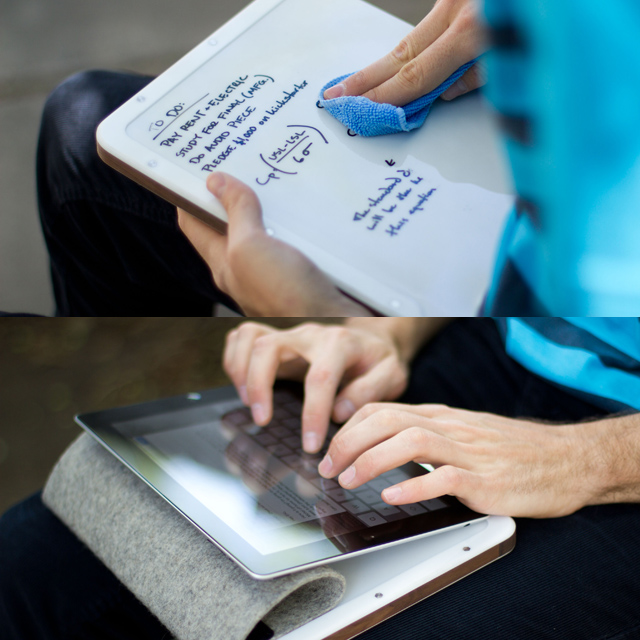 TO DO:
PAY RENT + ELECTRIC
STUDY FOR FINAL (MFG)
DO AUDIO PIECE
PLEDGE $1,000 on Kickstarter
Cp (USL-LSL / 6σ)
The standard
will be the
this equation